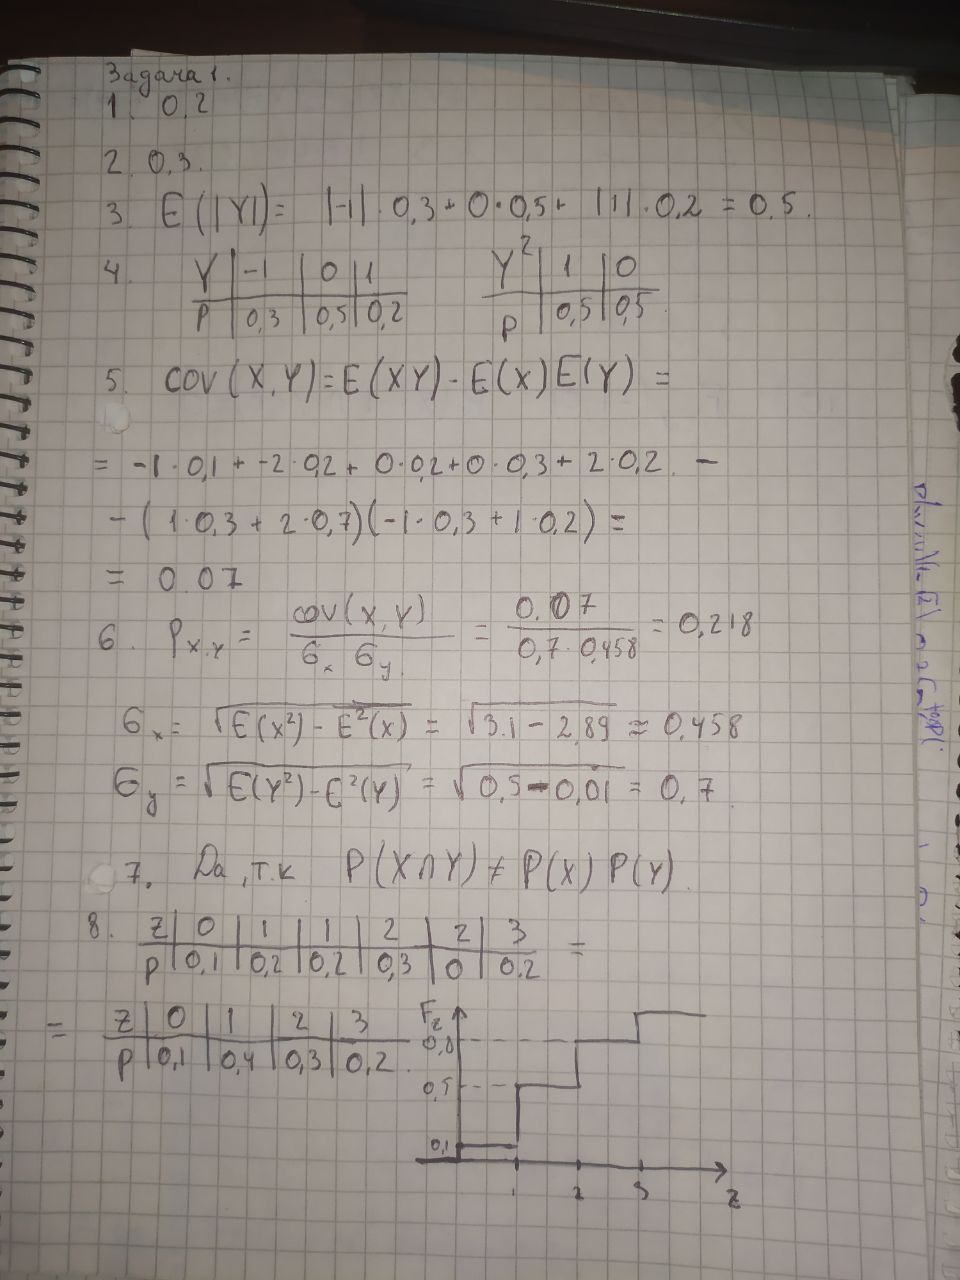 Задача 1.
1. 0,2
2. 0,3.
3. E(|Y|) = |-1| · 0,3 + 0 · 0,5 + |1| · 0,2 = 0,5.
4. Y | -1 | 0 | 1 Y² | 1 | 0
P | 0,3 | 0,5 | 0,2 P | 0,5 | 0,5
5. cov(X,Y) = E(XY) - E(X)E(Y) =
= -1 · 0,1 + -2 · 0,2 + 0 · 0,2 + 0 · 0,3 + 2 · 0,2 -
- (1 · 0,3 + 2 · 0,7)(-1 · 0,3 + 1 · 0,2) =
= 0.07
6. ρx,y = cov(X,Y) / бx бy = 0,07 / 0,7 · 0,458 = 0,218
бx = √(E(X²) - E²(X)) = √(3.1 - 2,89) ≈ 0,458
бy = √(E(Y²) - E²(Y)) = √(0,5 - 0,01) = 0,7
7. Да, т.к P(X∩Y) ≠ P(X) P(Y).
8. Z | 0 | 1 | 1 | 2 | 2 | 3 =
P | 0,1 | 0,2 | 0,2 | 0,3 | 0 | 0.2
= Z | 0 | 1 | 2 | 3
P | 0,1 | 0,4 | 0,3 | 0,2
Fz
0,8
0,5
0,1
1 2 3 Z